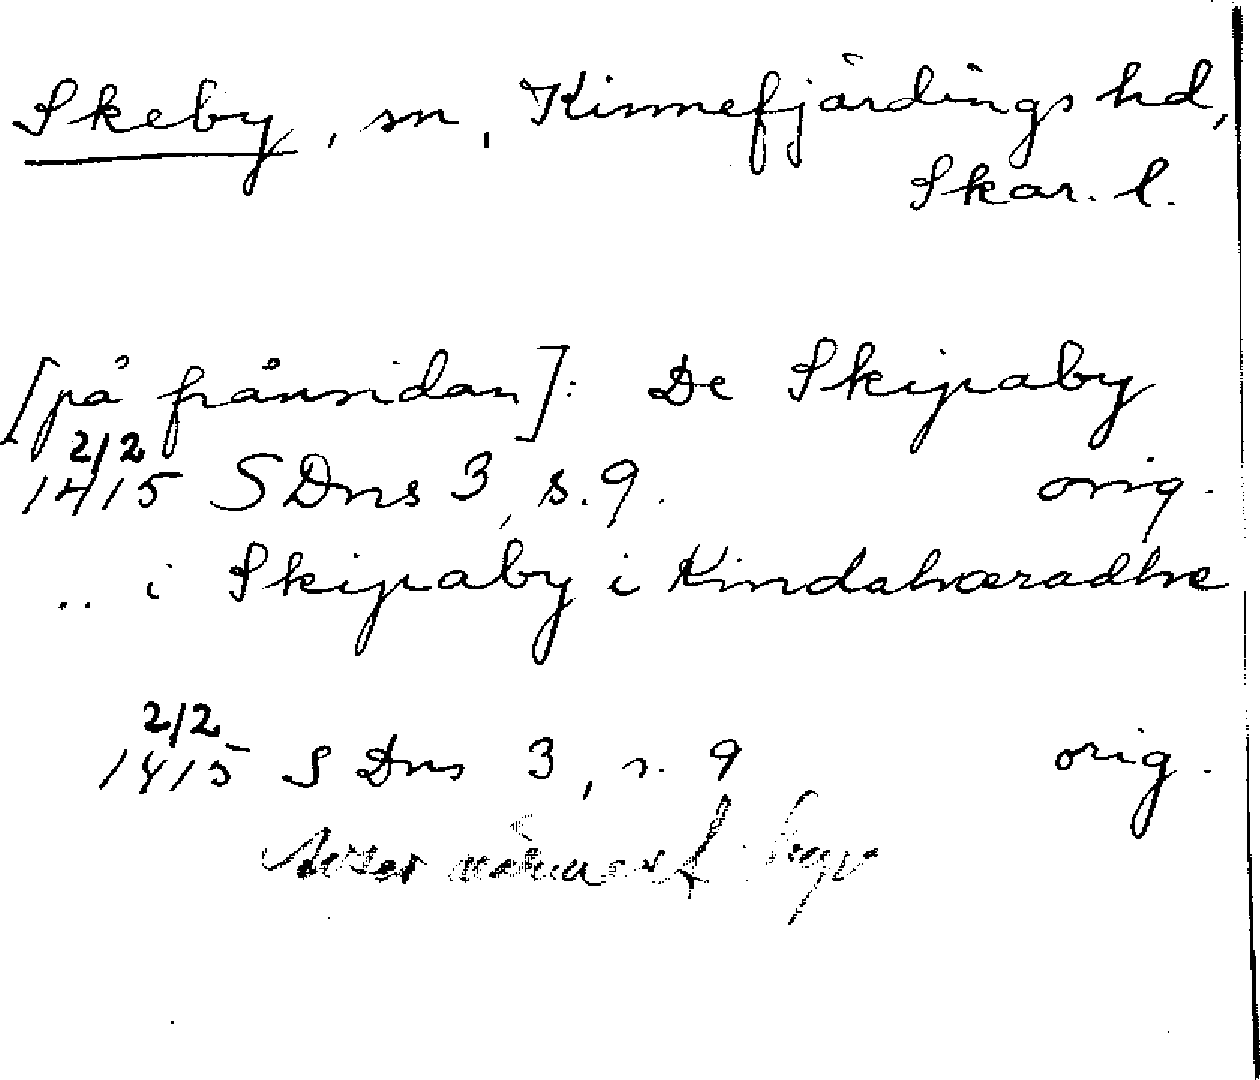 Skeby, sn, Kinnefjärdings hd,
Skar. l.
[på frånsidan]: De Skipaby
2/2
1415 SDns 3, s. 9. orig.
.. i Skipaby i Kindahæradhe
2/2
1415 S Dns 3, s. 9 orig.
Avser närmast byn